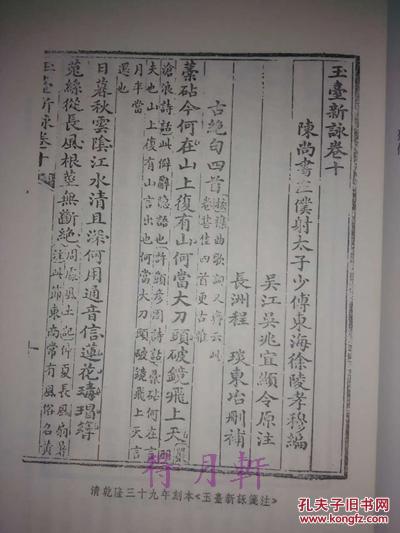 玉臺新詠卷十
陳尚書左僕射太子少傅東海徐陵孝穆編
吳江吳兆宜顯令原注
長洲程琰東冶刪補
古絕句四首
藁砧今何在山上復有山何當大刀頭破鏡飛上天
滄浪詩話此僻辭隱語也許顗彥周詩話藁砧何在言
夫也山上復有山言出也何當大刀頭破鏡飛上天言
月半當還也
日暮秋雲陰江水清且深何用通音信蓮花瑇瑁簪
菟絲從長風根莖無斷絕
玉臺新詠卷十
符月軒
清乾隆三十九年刻本《玉臺新詠箋注》